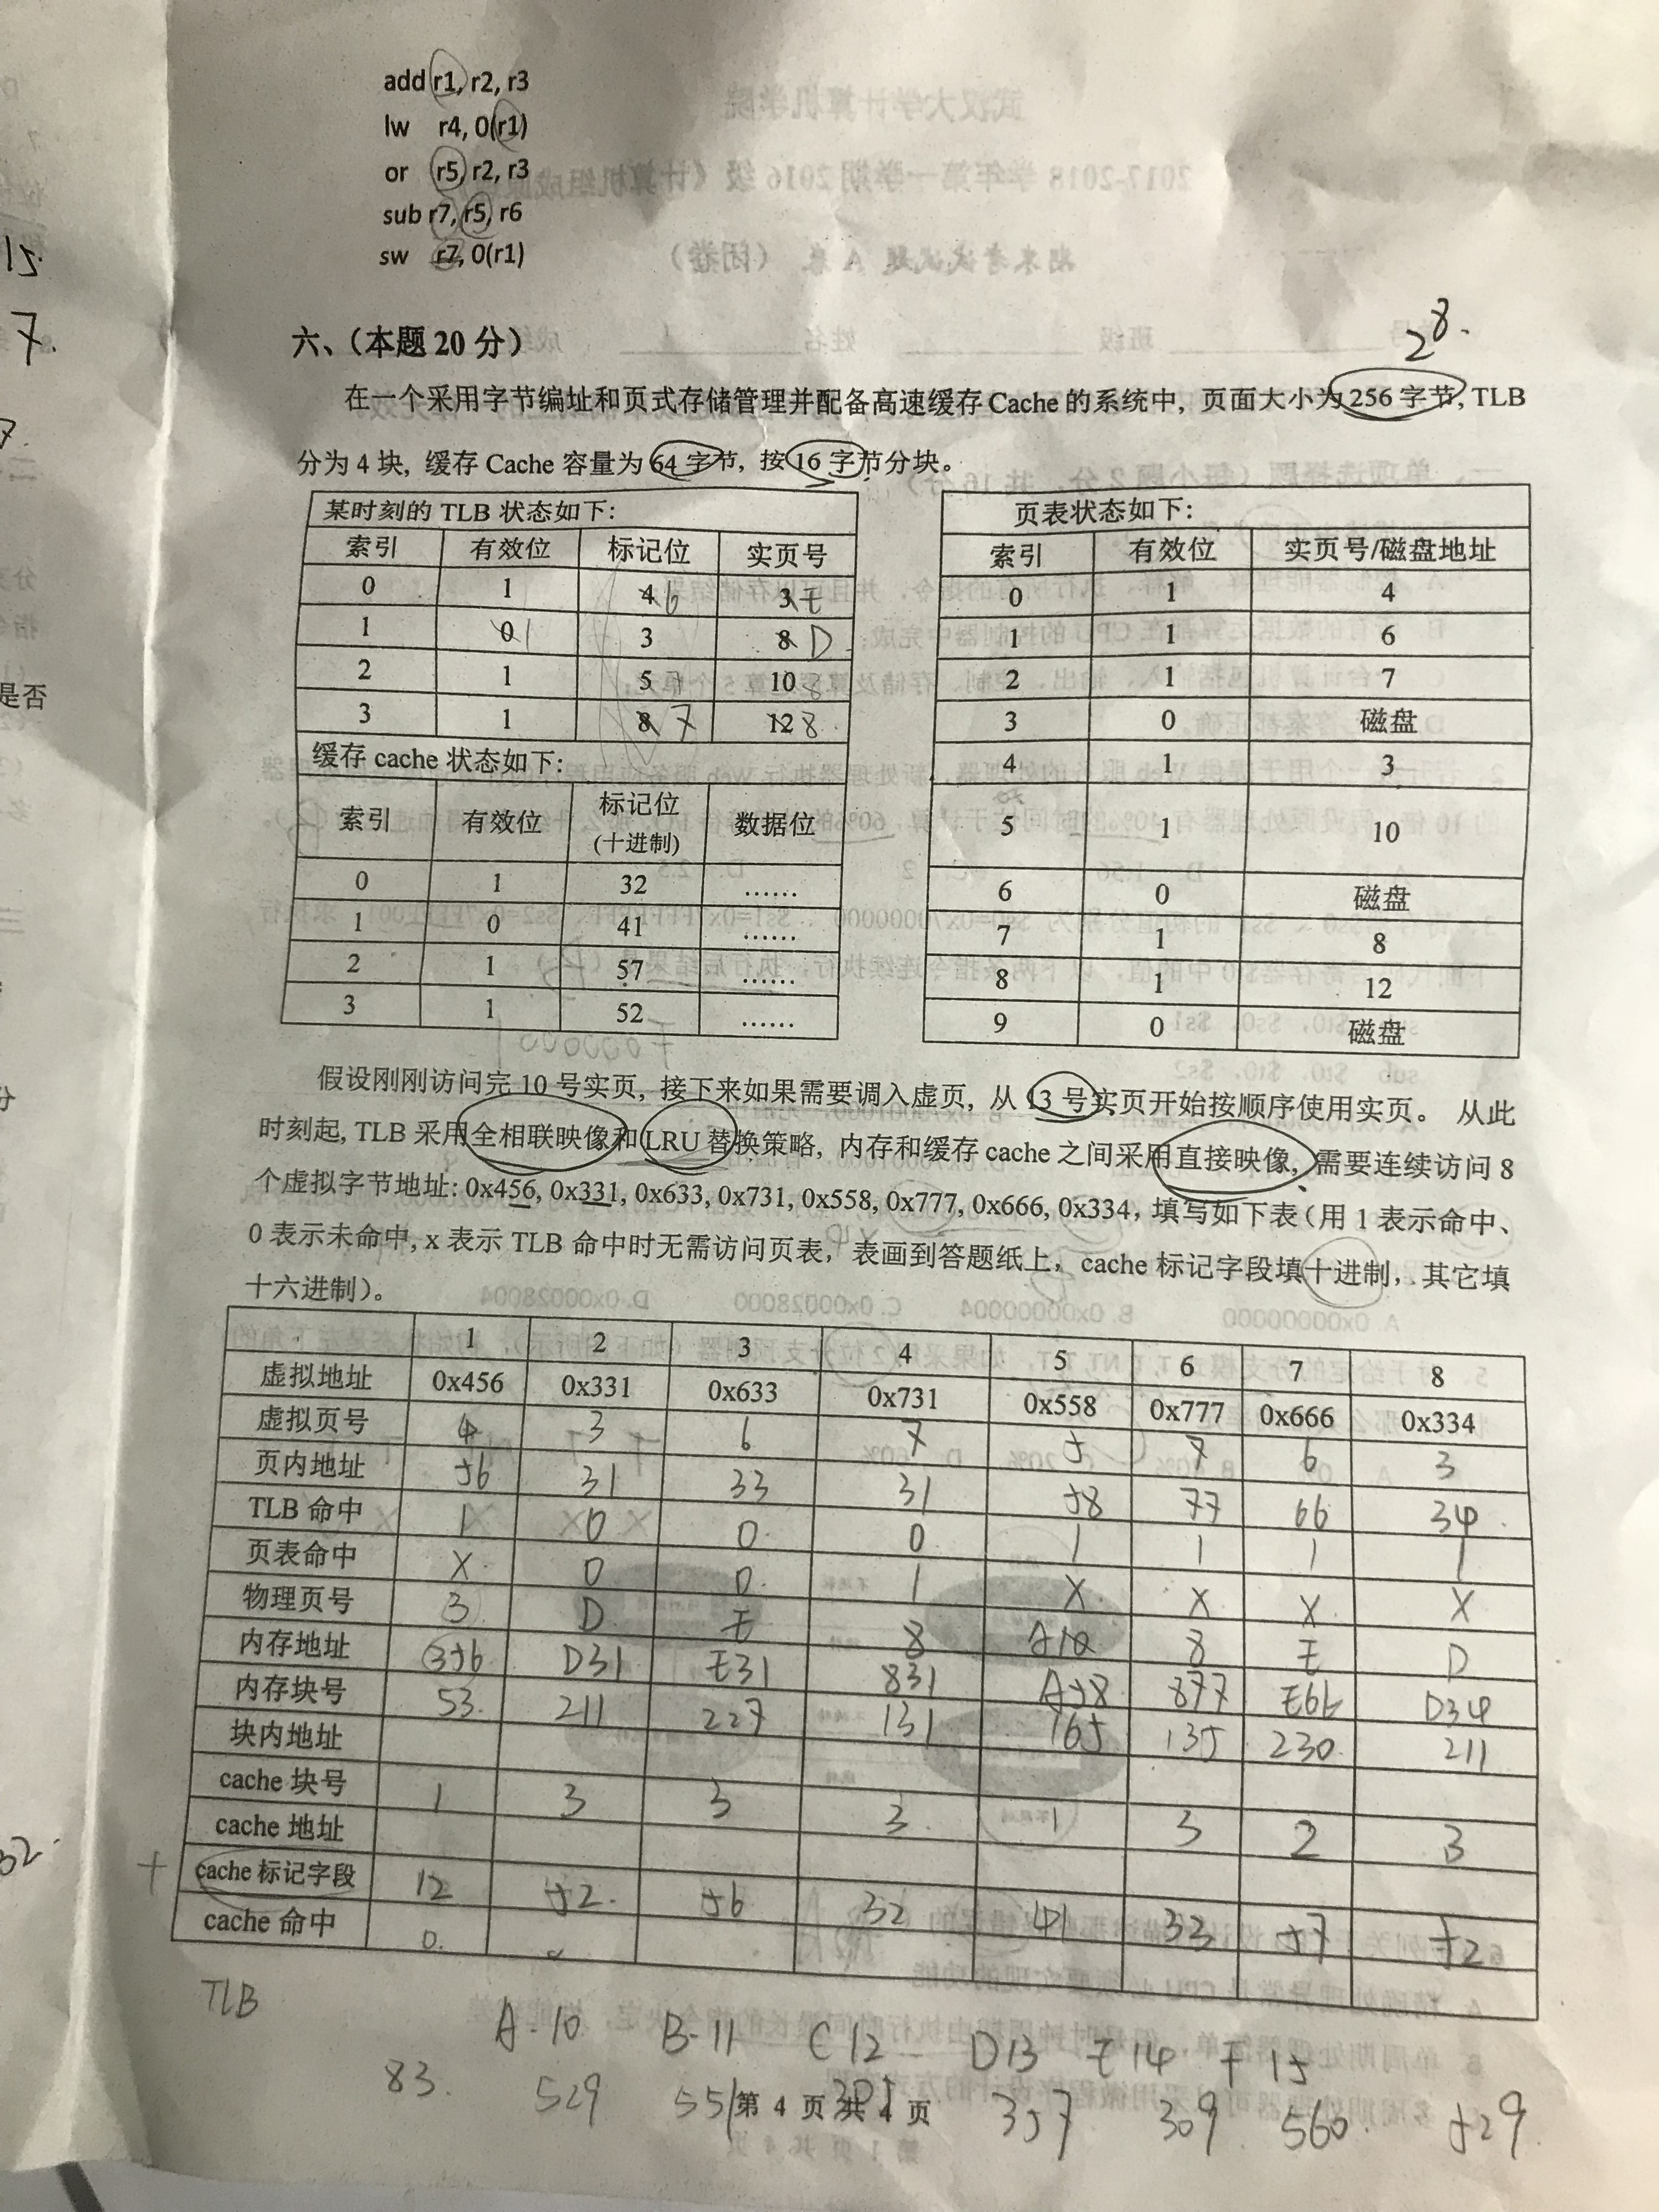 add r1, r2, r3
lw r4, 0(r1)
or r5, r2, r3
sub r7, r5, r6
sw r7, 0(r1)
15
7.
是否
六、（本题 20 分）
2^8.
在一个采用字节编址和页式存储管理并配备高速缓存 Cache 的系统中, 页面大小为 256 字节, TLB
分为 4 块, 缓存 Cache 容量为 64 字节, 按 16 字节分块。
某时刻的 TLB 状态如下:
索引 有效位 标记位 实页号
0 1 4 6 3 E
1 0 1 3 8 D
2 1 5 10
3 1 8 7 12 8
缓存 cache 状态如下:
索引 有效位 标记位 (十进制) 数据位
0 1 32 ……
1 0 41 ……
2 1 57 ……
3 1 52 ……
页表状态如下:
索引 有效位 实页号/磁盘地址
0 1 4
1 1 6
2 1 7
3 0 磁盘
4 1 3
5 1 10
6 0 磁盘
7 1 8
8 1 12
9 0 磁盘
假设刚刚访问完 10 号实页, 接下来如果需要调入虚页, 从 13 号实页开始按顺序使用实页。 从此
时刻起, TLB 采用全相联映像和 LRU 替换策略, 内存和缓存 cache 之间采用直接映像, 需要连续访问 8
个虚拟字节地址: 0x456, 0x331, 0x633, 0x731, 0x558, 0x777, 0x666, 0x334, 填写如下表（用 1 表示命中、
0 表示未命中, x 表示 TLB 命中时无需访问页表, 表画到答题纸上, cache 标记字段填十进制, 其它填
十六进制）。
1 2 3 4 5 6 7 8
虚拟地址 0x456 0x331 0x633 0x731 0x558 0x777 0x666 0x334
虚拟页号 4 3 6 7 5 7 6 3
页内地址 56 31 33 31 58 77 66 34
TLB 命中 1 0 0 0 1 1 1 1
页表命中 X 0 0 1 X X X X
物理页号 3 D E 8 A10 8 E D
内存地址 356 D31 E31 831 A58 877 E66 D34
内存块号 53 211 227 131 165 135 230 211
块内地址
cache 块号 1 3 3 3 1 3 2 3
cache 地址
cache 标记字段 12 52 56 32 41 33 57 52
cache 命中 0
TLB
A-10 B-11 C12 D13 E14 F15
83. 529 551 357 309 560 529
第 4 页 共 4 页